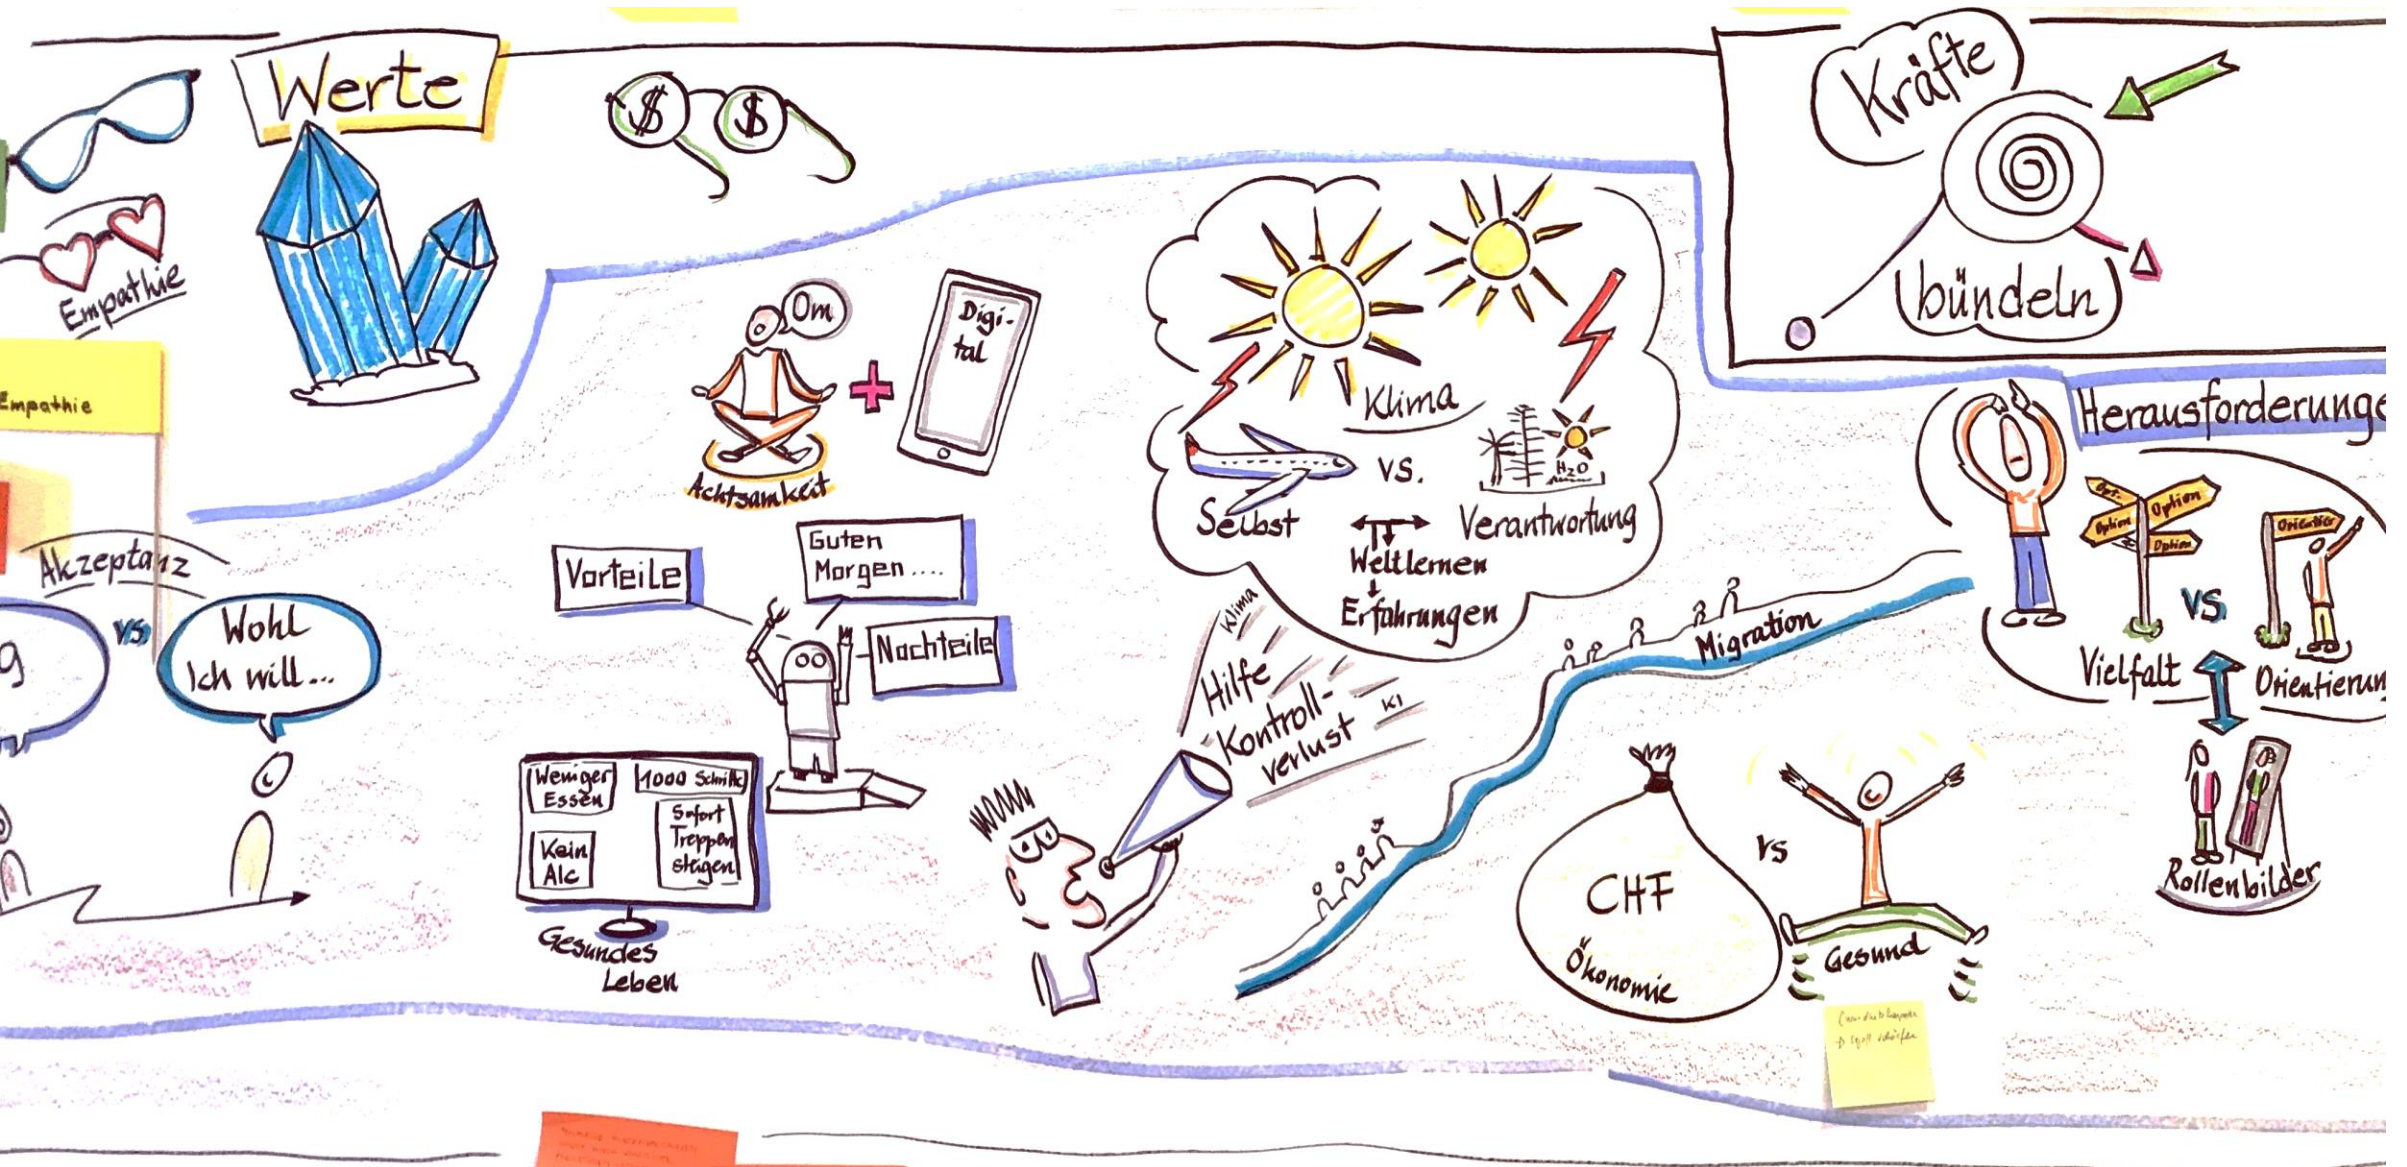 Werte
$ $
Kräfte
bündeln
Empathie
Empathie
Om
Digi-
tal
Achtsamkeit
Klima
H₂O
vs.
Selbst
Verantwortung
Weltlernen
Erfahrungen
Herausforderunge
Opt.
Option
Option
Option
vs.
Vielfalt
Orientierun
Rollenbilder
Akzeptanz
g
vs
Wohl
Ich will...
Vorteile
Guten
Morgen....
Nachteile
Weniger
Essen
1000 Schritte
Sofort
Treppen
steigen
Kein
Alc
Gesundes
Leben
Klima
Hilfe
Kontroll-
verlust
KI
Migration
CHF
Ökonomie
vs
Gesund